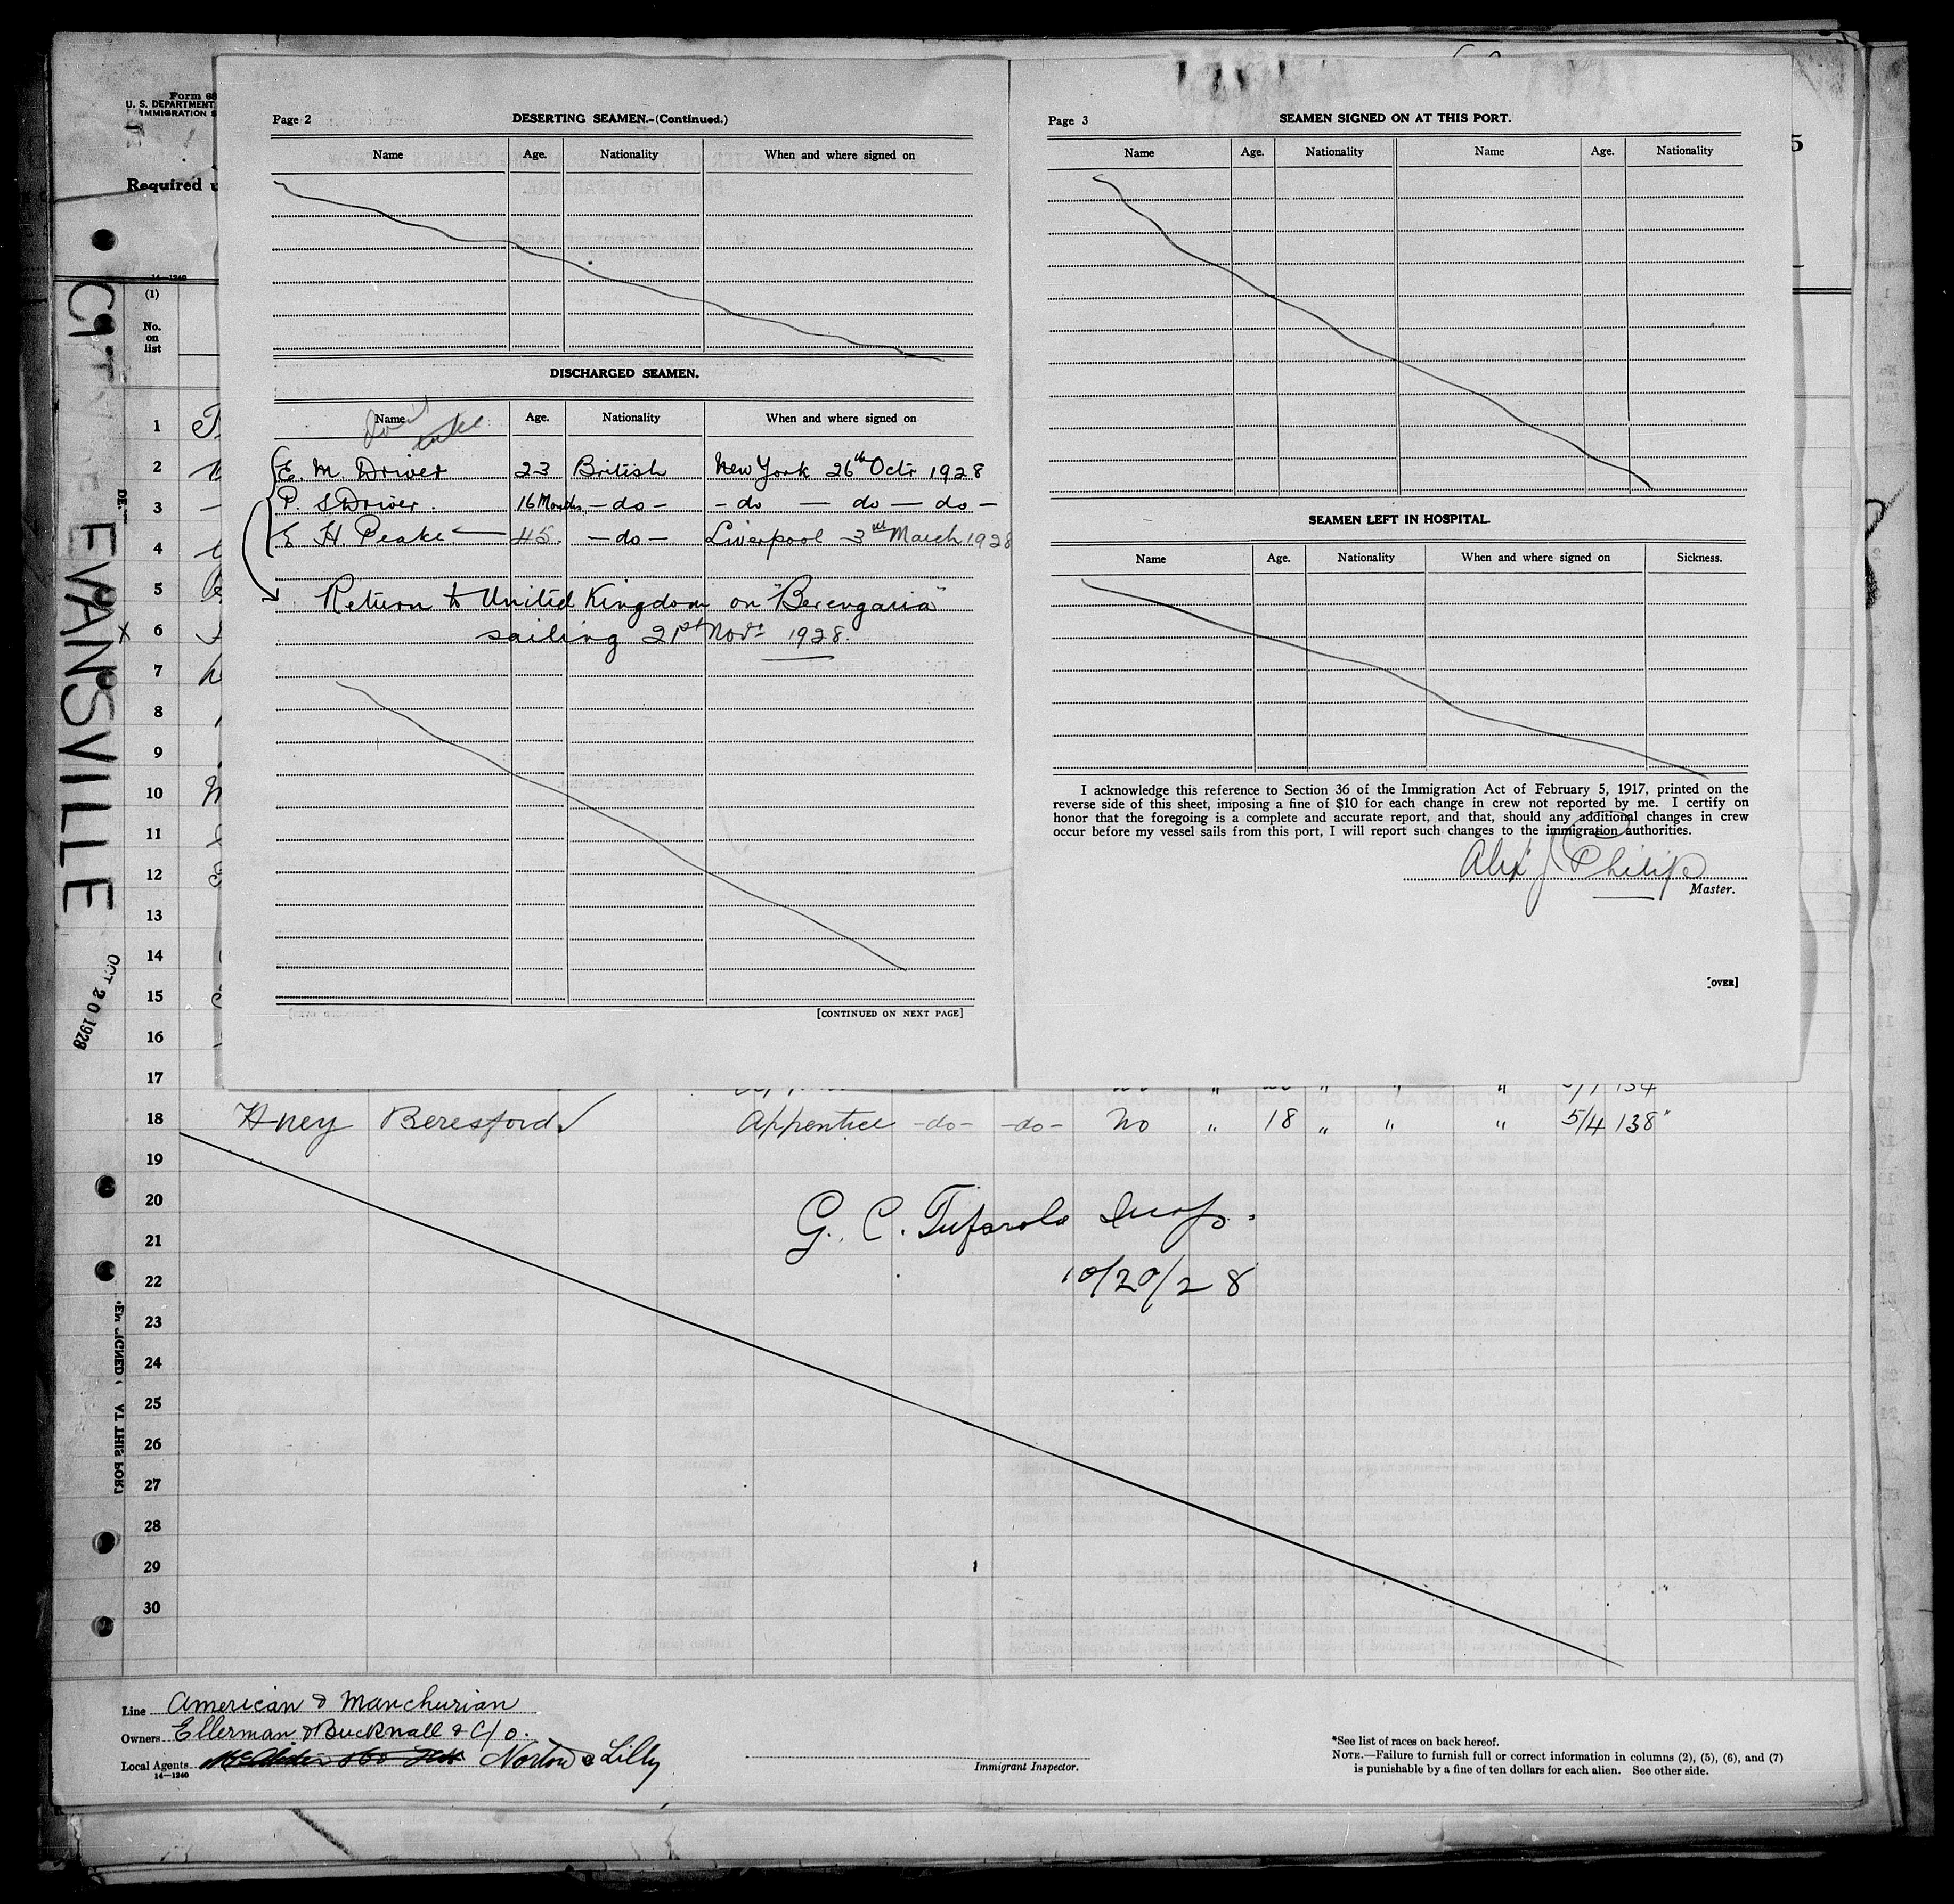 Form 68
U. S. DEPARTMENT
IMMIGRATION S
Required u
14—1240
(1)
No.
on
list
CITY OF EVANSVILLE
OCT 20 1928
Page 2
DESERTING SEAMEN.-(Continued.)
Name Age. Nationality When and where signed on
DISCHARGED SEAMEN.
Name Age. Nationality When and where signed on
E. M. Driver 23 British New York 26th Octr 1928
P. S Driver. 16 Months -do- -do — do — do -
E H. Peake 45. -do- Liverpool 3rd March 1928
Return to United Kingdom on "Berengaria"
sailing 21st Novr 1928.
[CONTINUED ON NEXT PAGE]
Page 3
SEAMEN SIGNED ON AT THIS PORT.
Name Age. Nationality Name Age. Nationality
SEAMEN LEFT IN HOSPITAL.
Name Age. Nationality When and where signed on Sickness.
I acknowledge this reference to Section 36 of the Immigration Act of February 5, 1917, printed on the
reverse side of this sheet, imposing a fine of $10 for each change in crew not reported by me. I certify on
honor that the foregoing is a complete and accurate report, and that, should any additional changes in crew
occur before my vessel sails from this port, I will report such changes to the immigration authorities.
Alex J Philip
Master.
[OVER]
5
1
2
3
4
5
x 6
7
8
9
10
11
12
13
14
15
16
17
18 Hney Beresford ✓ Apprentice -do- -do- No " 18 " " " 5/4 138"
19
20
21
22
23
24
25
26
27
28
29
30
10/20/28
Line American & Manchurian
Owners Ellerman & Bucknall & C/o.
Local Agents Norton & Lilly
14—1240
Immigrant Inspector.
*See list of races on back hereof.
NOTE.—Failure to furnish full or correct information in columns (2), (5), (6), and (7)
is punishable by a fine of ten dollars for each alien. See other side.